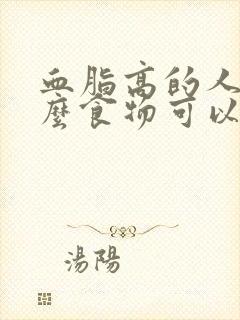 血脂高的人
麼食物可以
湯陽